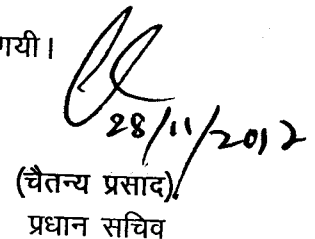 गयी।
28/11/2012
(चैतन्य प्रसाद)
प्रधान सचिव